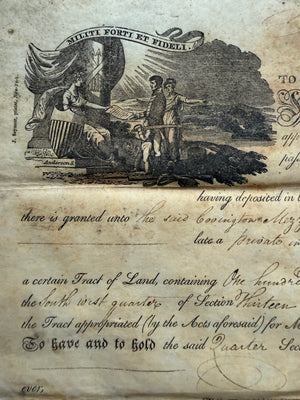 MILITI FORTI ET FIDELI.
TO
Anderson
having deposited in t
there is granted unto the said Covington
late a private
a certain Tract of Land, containing One hundre
the South west quarter of Section Thirteen
the Tract appropriated (by the Acts aforesaid) for M
To have and to hold the said Quarter Sec
ever,